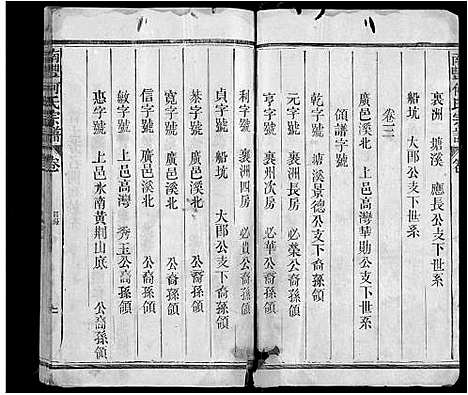 裏洲 塘溪 應長公支下世系
船坑 大郎公支下世系
卷三
廣邑溪北
上邑高灣華勛公支下世系
領譜字號
乾字號 塘溪景德公支下裔孫領
元字號 裏洲長房 必榮公裔孫領
亨字號 裏州次房 必華公裔孫領
利字號 裏洲四房 必貴公裔孫領
貞字號 船坑 大郎公支下裔孫領
恭字號 廣邑溪北 公裔孫領
寬字號 廣邑溪北 公裔孫領
信字號 廣邑溪北 公裔孫領
敏字號 上邑高灣 秀玉公裔孫領
惠字號 上邑水南黃荆山底 公裔孫領
南豐何氏宗譜 卷
目錄
七